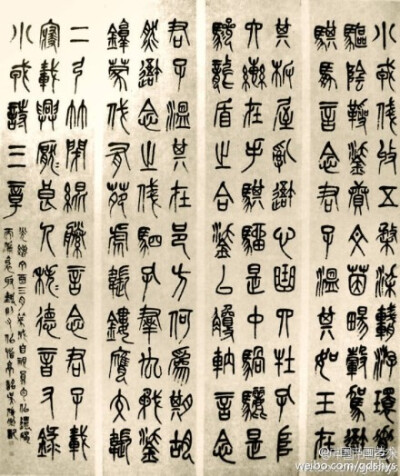 小戎俴收五楘梁輈游環脅
驅陰靷鋈續文茵暢轂駕我
騏馵言念君子溫其如玉在
其板屋亂我心曲四牡孔阜
六轡在手騏騮是中騧驪是
驂龍盾之合鋈以觼軜言念
君子溫其在邑方何為期胡
然我念之俴駟孔群厹矛鋈
錞蒙伐有苑虎韔鏤膺交韔
二弓竹閉緄縢言念君子載
寢載興厭=良人秩=德音又錄
小戎詩三章
weibo.com/gdshys